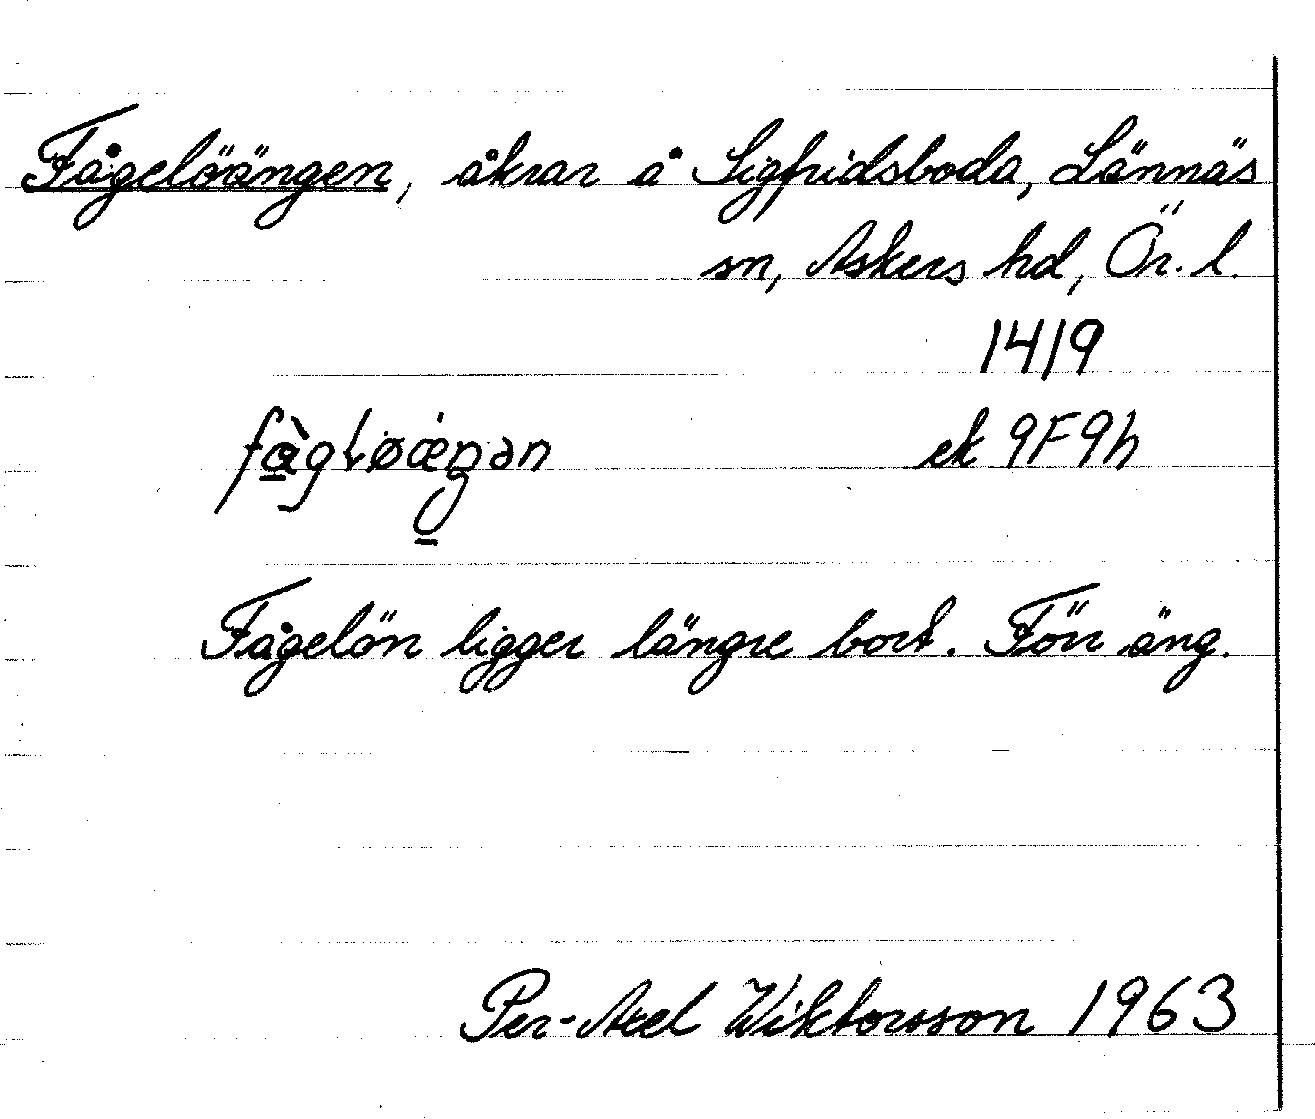 Fågelöängen, åkrar å Sigfridsboda, Lännäs
sn, Askers hd, Ör. l.
1419
fàgɫøǽŋən ek 9F9h
Fågelön ligger längre bort. Förr äng.
Per-Axel Wiktorsson 1963